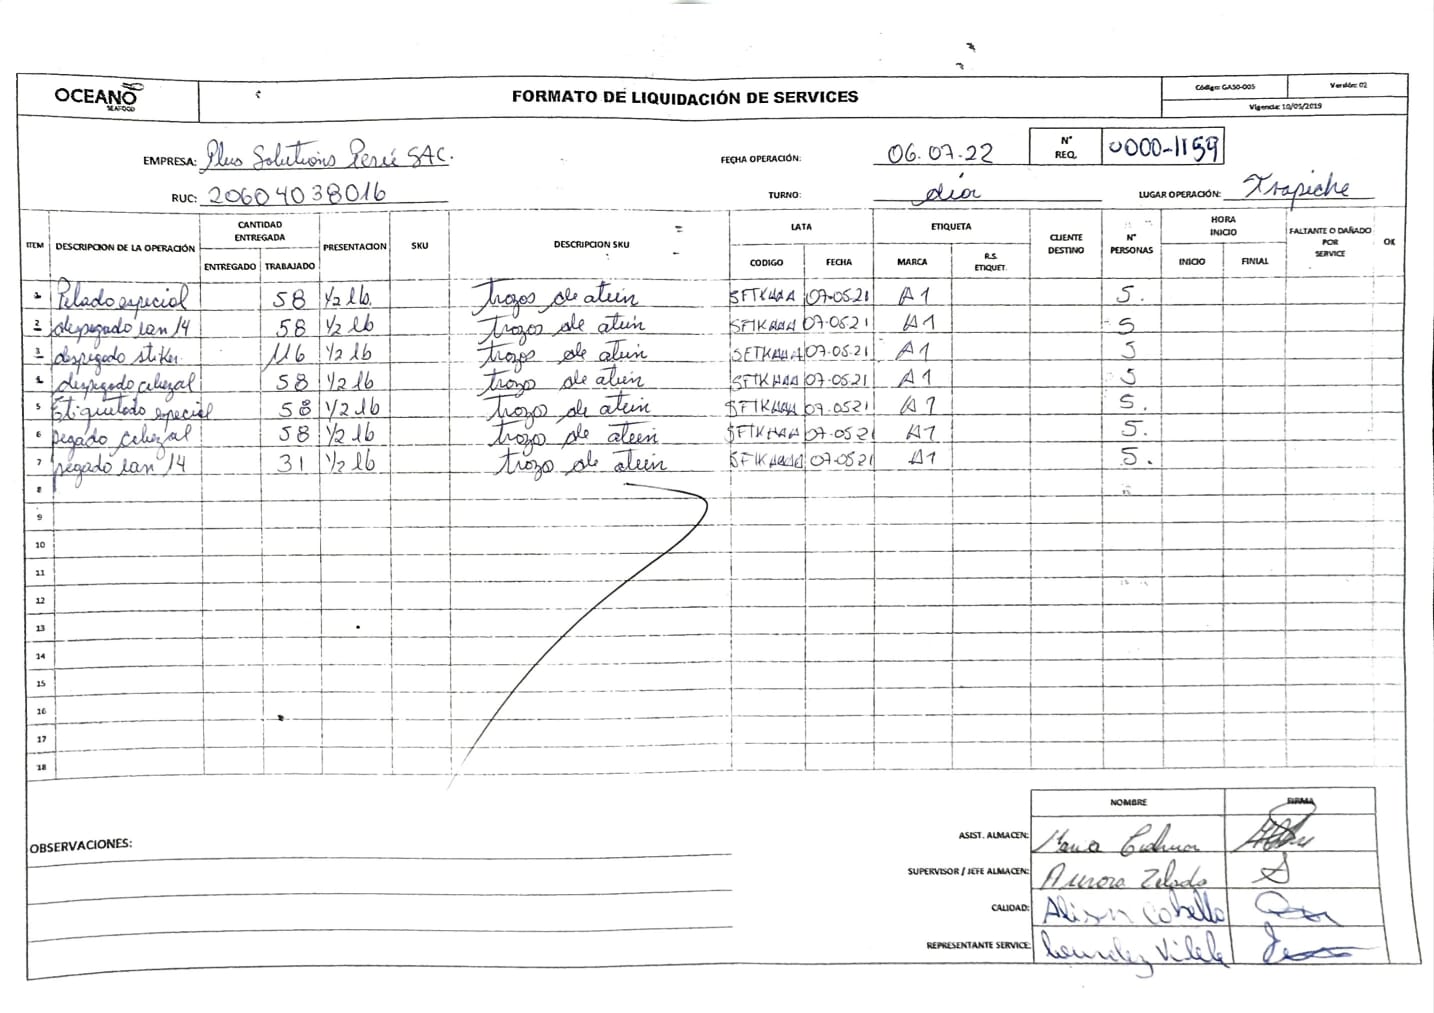 OCEANO
SEAFOOD
FORMATO DE LIQUIDACIÓN DE SERVICES
Código: GASO-005
Versión: 02
Vigencia: 10/05/2019
EMPRESA: Plus Solutions Perú SAC.
FECHA OPERACIÓN: 06.07.22
N° REQ. 0000-1159
RUC: 20604038016
TURNO: día
LUGAR OPERACIÓN: Trapiche
ITEM DESCRIPCION DE LA OPERACIÓN CANTIDAD ENTREGADA PRESENTACION SKU DESCRIPCION SKU LATA ETIQUETA CLIENTE DESTINO N° PERSONAS HORA INICIO FALTANTE O DAÑADO POR SERVICE OK
ENTREGADO TRABAJADO CODIGO FECHA MARCA R.S. ETIQUET. INICIO FINIAL
1 Pelado especial 58 1/2 lb. trozos de atún 07-05.21 A1 5.
2 despegado lan 14 58 1/2 lb trozos de atún 07-0521 A1 5
3 despegado stiker 116 1/2 lb trozos de atún 07-05.21 A1 5
4 despegado 58 1/2 lb trozo de atún 07-05.21 A1 5
5 Etiquetado especial 58 1/2 lb trozo de atún 07-0521 A1 5.
6 pegado 58 1/2 lb trozo de atún 07-0521 A1 5.
7 pegado lan 14 31 1/2 lb trozo de atún 07-0521 A1 5.
8
9
10
11
12
13
14
15
16
17
18
NOMBRE FIRMA
OBSERVACIONES:
ASIST. ALMACEN:
SUPERVISOR / JEFE ALMACEN: Aurora Zelada
CALIDAD: Alison Cabello
REPRESENTANTE SERVICE: Lourdez Vilela